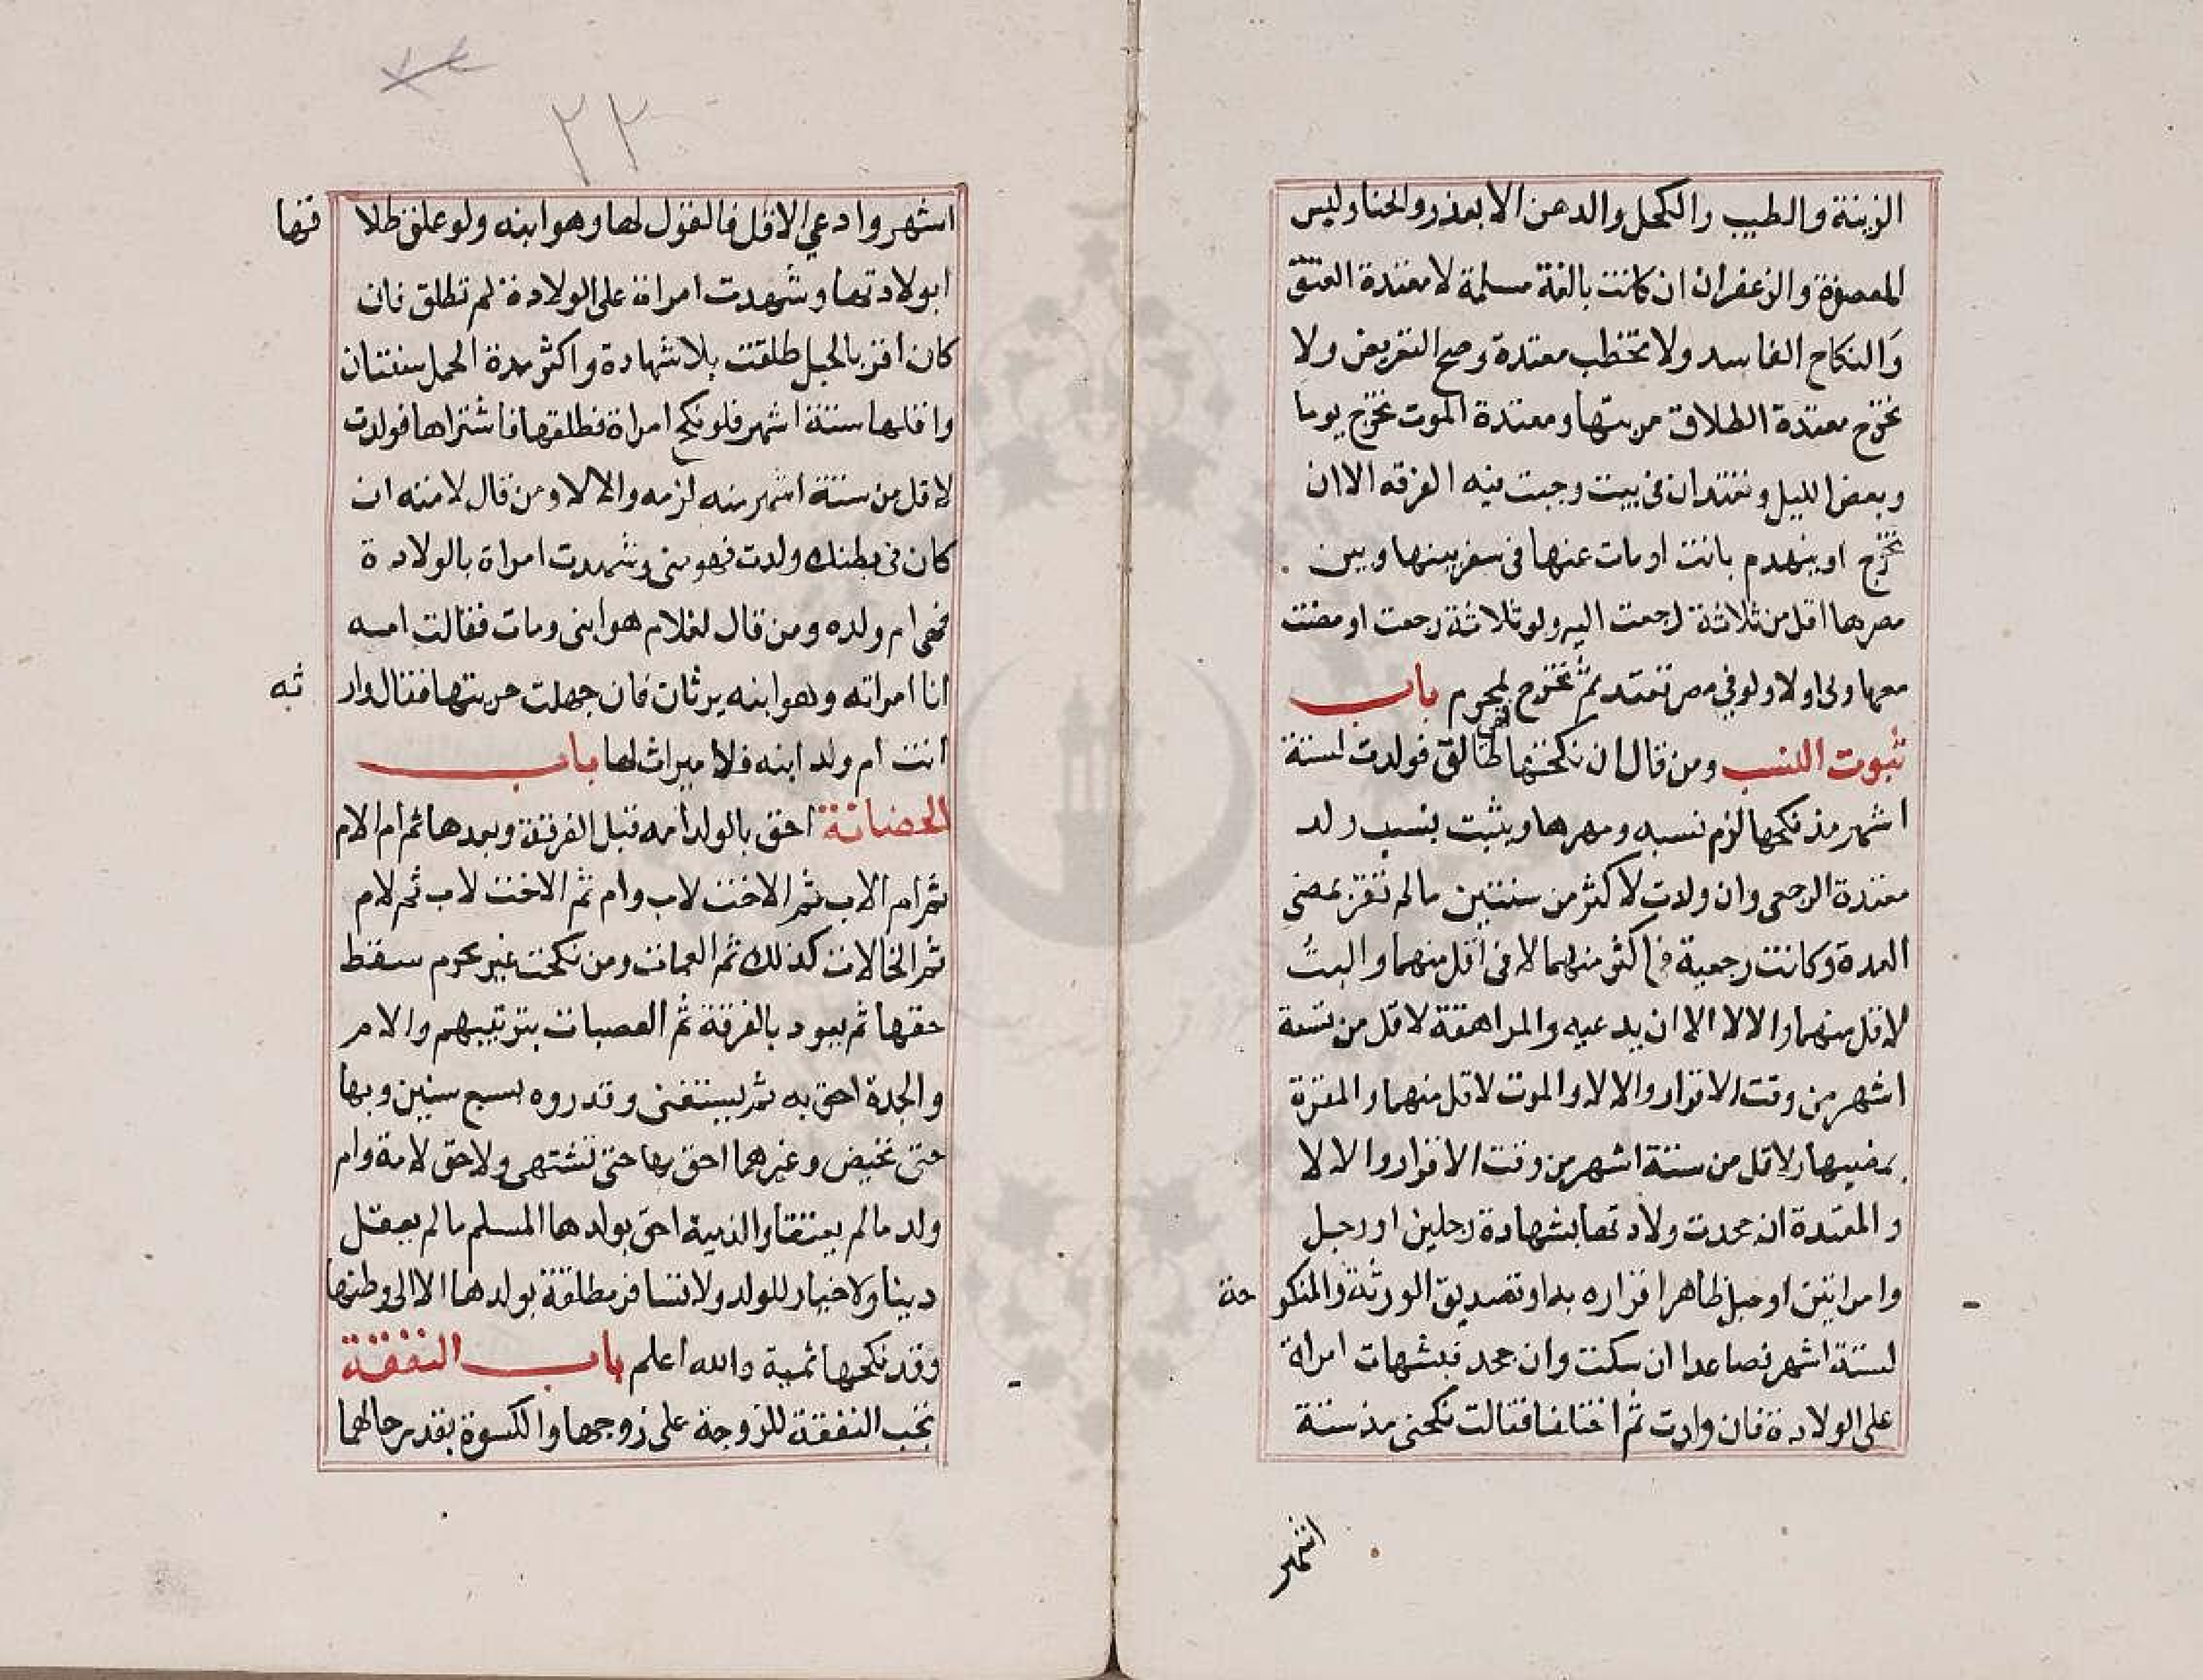 الزينة والطيب والكحل والدهن الا بعذر والحنا ولبس
المعصفر والزعفران ان كانت بالغة مسلمة لا معتدة العتق
والنكاح الفاسد ولا تخطب معتدة وصح التعريض ولا
تخرج معتدة الطلاق من بيتها ومعتدة الموت تخرج يوما
وبعض الليل وتعتدان فى بيت وجبت فيه الفرقه الا ان
تخرج او ينهدم بانت او مات عنها فى سفر بينها وبين
مصرها اقل من ثلاثة رجعت اليه ولو ثلاثة رجعت او مضت
معها ولى اولا ولو فى مصر تعتد ثم تخرج لمحرم باب
ثبوت النسب ومن قال ان نكحتها فهى طالق فولدت لستة
اشهر مذ نكحها لزم نسبه ومهرها ويثبت بنسب ولد
معتدة الرجعى وان ولدت لاكثر من سنتين ما لم تقر بمضى
العدة وكانت رجعية فى اكثر منهما لا فى اقل منهما والبتُ
لاقل منهما والا لا الا ان يدعيه والمراهقة لاقل من تسعة
اشهر من وقت الاقرار والا لا والموت لاقل منهما والمقرة
بمضيها لاقل من ستة اشهر من وقت الاقرار والا لا
والمعتدة ان جحدت ولادتها بشهادة رجلين او رجل
وامراتين او حبل ظاهر اقراره به او تصديق الورثة والمنكوحة
لستة اشهر فصاعدا ان سكت وان جحد فبشهات امراة
على الولادة فان وادت ثم اختلفا فقالت نكحنى مذ ستة
اشهر
٢٣
اشهر وادعى الاقل فالقول لها وهو ابنه ولو علق طلاقها
ابولادتها وشهدت امراة على الولادة لم تطلق فان
كان اقر بالحبل طلقت بلا شهادة واكثر مدة الحمل سنتان
واقلها ستة اشهر فلو نكح امراة فطلقها فاشتراها فولدت
لاقل من ستة اشهر منه لزمه والا لا ومن قال لامته ان
كان فى بطنك ولدت فهو منى وشهدت امراة بالولادة
فهى ام ولده ومن قال لغلام هو ابنى ومات فقالت امه
انا امراته وهو ابنه يرثان فان جهلت حريتها فقال وارثه
انت ام ولد ابنه فلا ميراث لها باب
الحضانة احق بالولد امه قبل الفرقة وبعدها ثم ام الام
ثم ام الاب ثم الاخت لاب وام ثم الاخت لاب ثم لام
ثم الخالات كذلك ثم العمات ومن نكحت غير محرم سقط
حقها ثم يعود بالفرقة ثم العصبات بترتيبهم والام
والجدة احق به ثم يستغنى وقدروه بسبع سنين وبها
حتى تحيض وغيرهما احق بها حتى تشتهى ولا حق لامة وام
ولد ما لم يعتقا والذمية احق بولدها المسلم ما لم يعقل
دينا ولا خيار للولد ولا تسافر مطلقة بولدها الا الى وطنها
وقد نكحها ثمية والله اعلم باب النفقة
تجب النفقة للزوجة على زوجها والكسوة بقدر حالهما